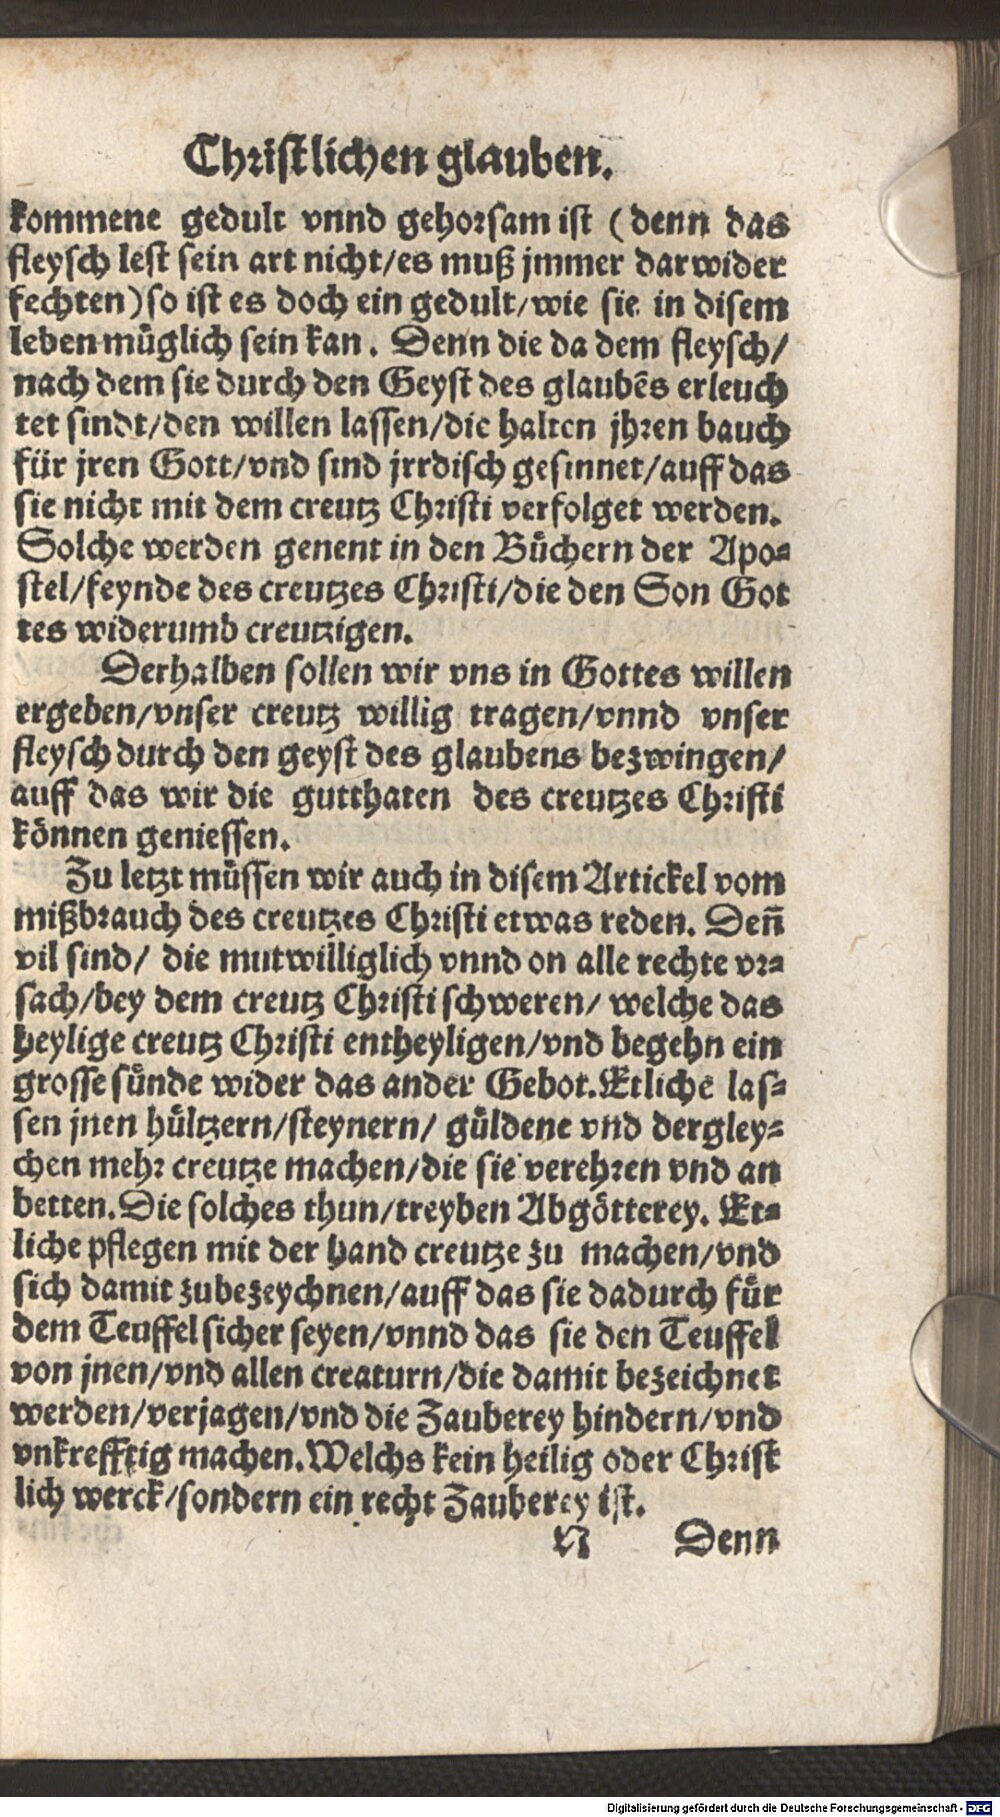 Christlichen glauben.
kommene gedult vnnd gehorsam ist ( denn das
fleysch lest sein art nicht/es muß jmmer darwider
fechten) so ist es doch ein gedult/wie sie in disem
leben müglich sein kan. Denn die da dem fleysch/
nach dem sie durch den Geyst des glaubēs erleuch
tet sindt/den willen lassen/die halten jhren bauch
für jren Gott/vnd sind jrrdisch gesinnet/auff das
sie nicht mit dem creutz Christi verfolget werden.
Solche werden genent in den Büchern der Apo-
stel/feynde des creutzes Christi/die den Son Got
tes widerumb creutzigen.
Derhalben sollen wir vns in Gottes willen
ergeben/vnser creutz willig tragen/vnnd vnser
fleysch durch den geyst des glaubens bezwingen/
auff das wir die gutthaten des creutzes Christi
können geniessen.
Zu letzt müssen wir auch in disem Artickel vom
mißbrauch des creutzes Christi etwas reden. Deñ
vil sind/ die mutwilliglich vnnd on alle rechte vr-
sach/bey dem creutz Christi schweren/ welche das
heylige creutz Christi entheyligen/vnd begehn ein
grosse sünde wider das ander Gebot. Etliche las-
sen jnen hültzern/steynern/ güldene vnd dergley-
chen mehr creutze machen/die sie verehren vnd an
betten. Die solches thun/treyben Abgötterey. Et-
liche pflegen mit der hand creutze zu machen/vnd
sich damit zubezeychnen/auff das sie dadurch für
dem Teuffel sicher seyen/vnnd das sie den Teuffel
von jnen/vnd allen creaturn/die damit bezeichnet
werden/verjagen/vnd die Zauberey hindern/vnd
vnkrefftig machen. Welchs kein heilig oder Christ
lich werck/sondern ein recht Zauberey ist.
N Denn
Digitalisierung gefördert durch die Deutsche Forschungsgemeinschaft - DFG